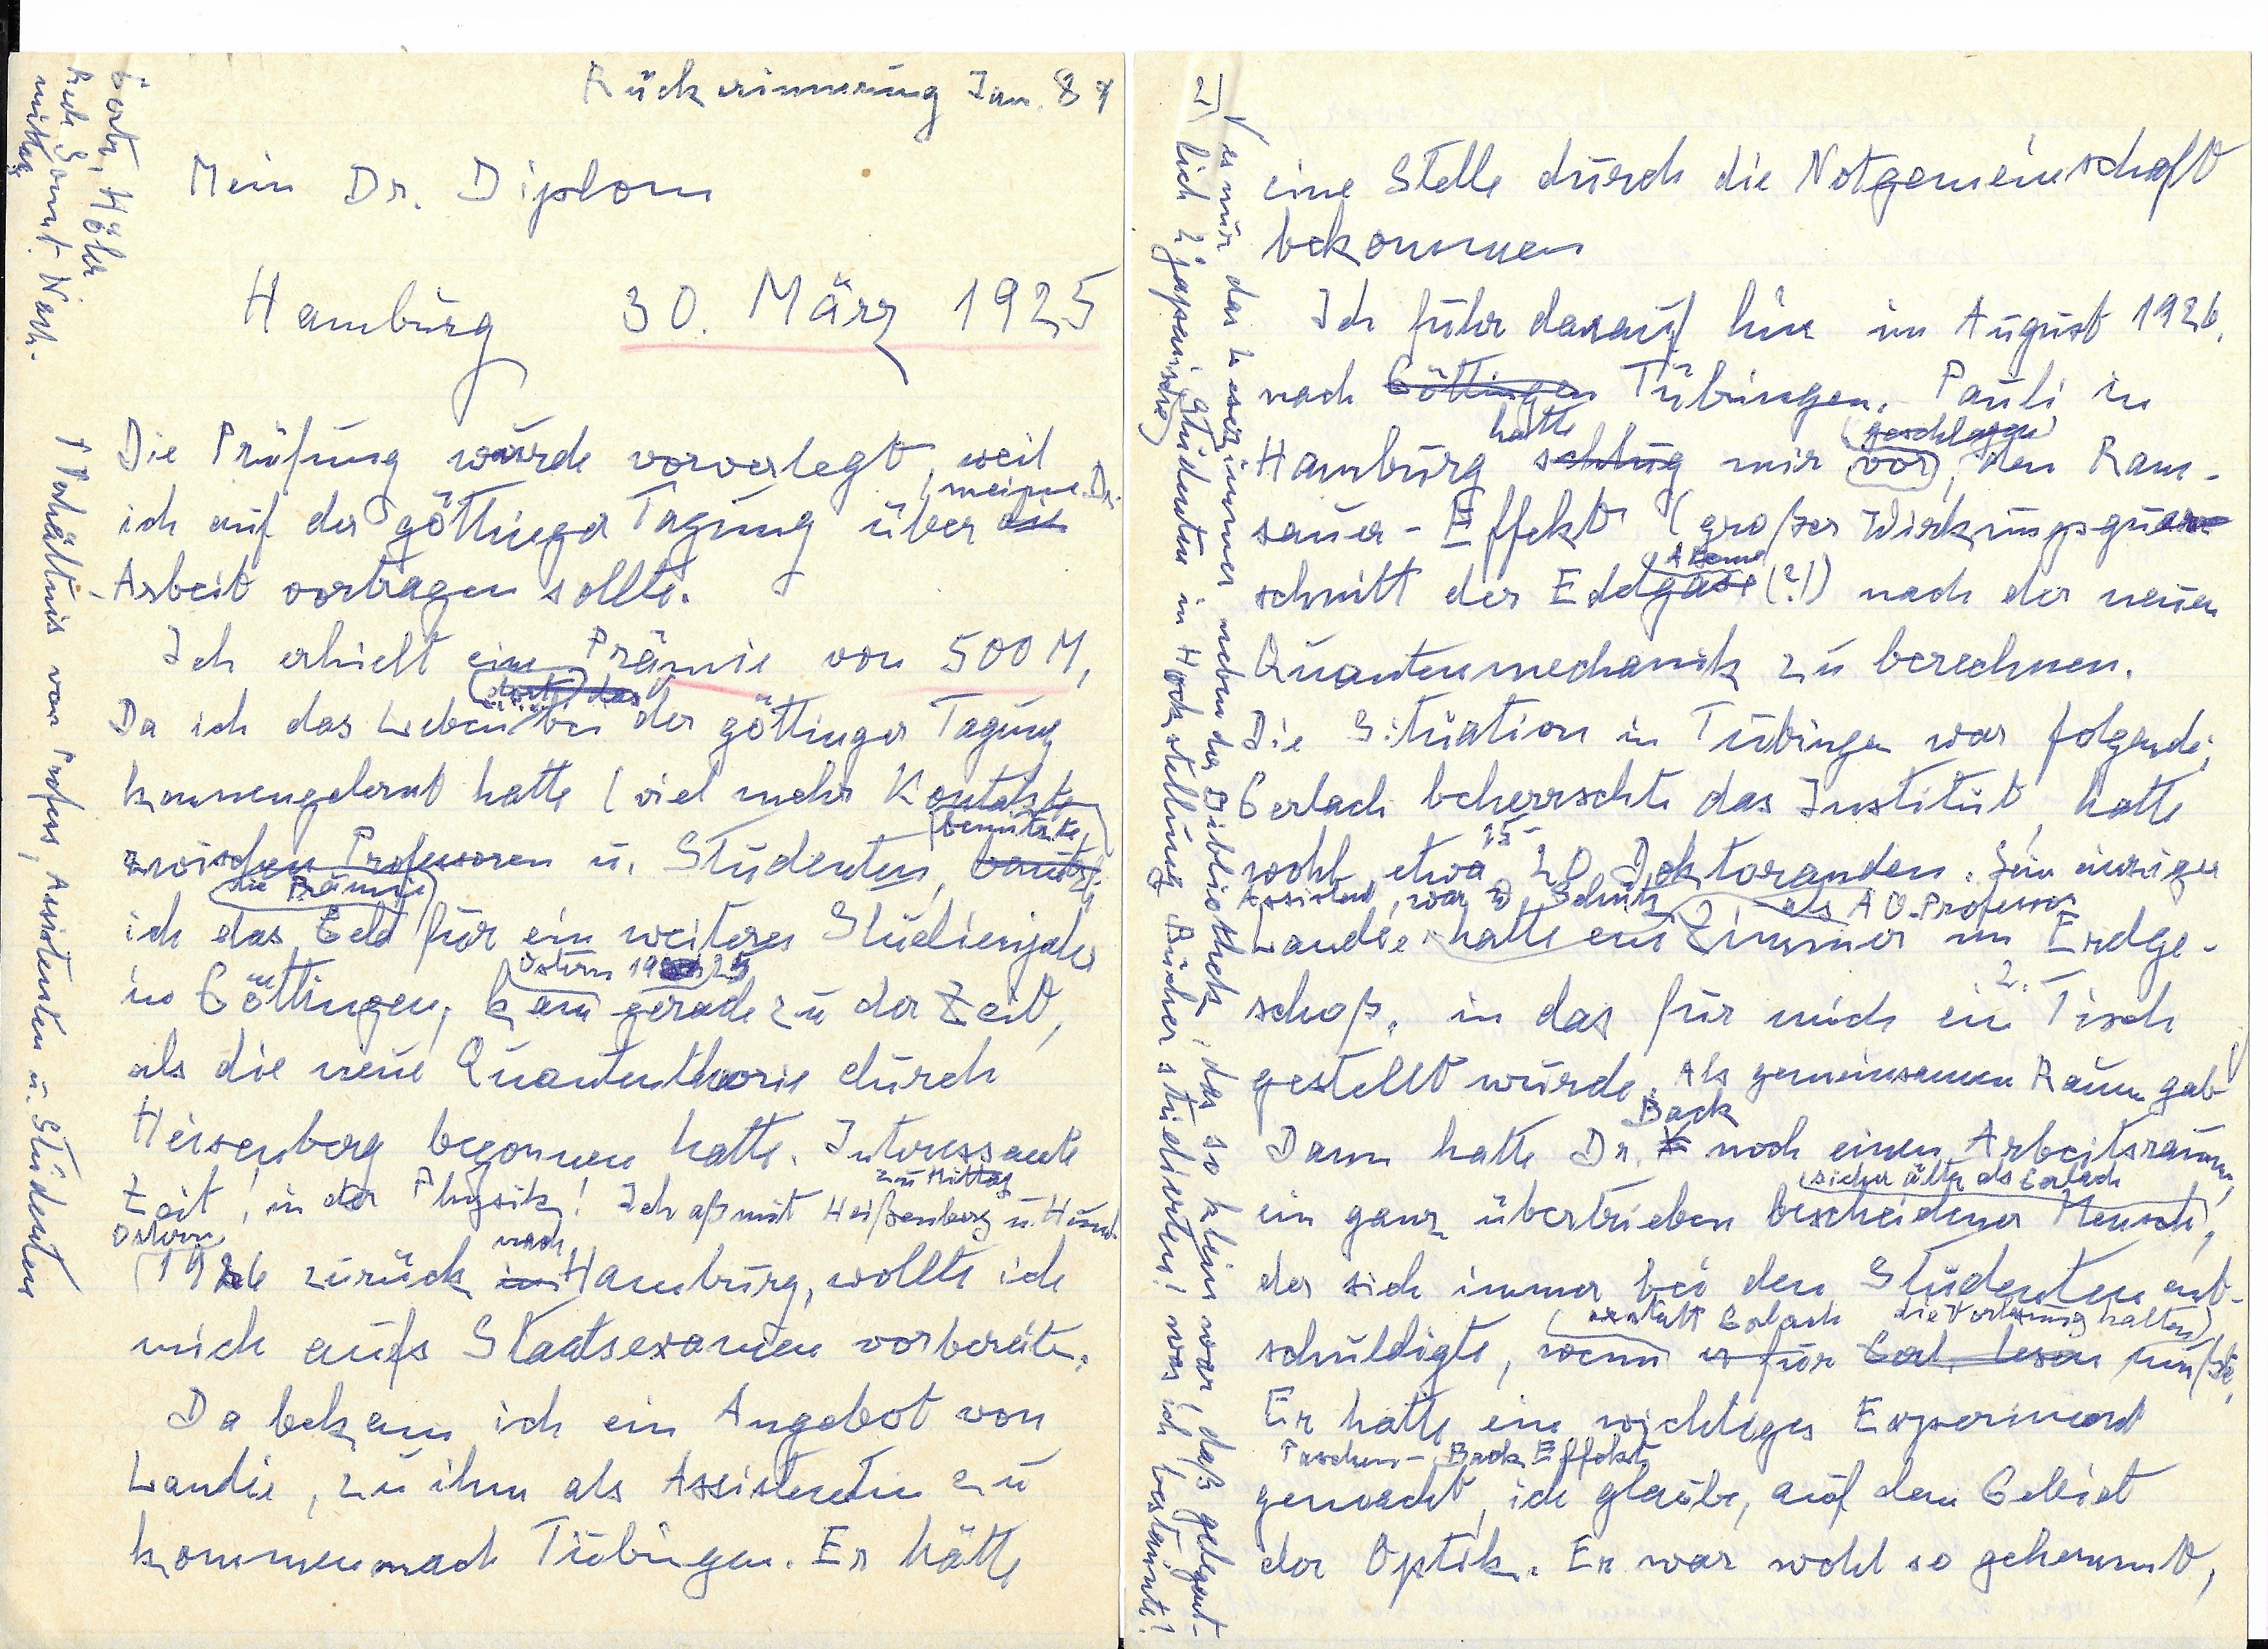 Rückerinnerung Jan. 84
Mein Dr. Diplom
Hamburg 30. März 1925
Die Prüfung wurde vorverlegt, weil
ich auf der göttinger Tagung über die meine Dr.
Arbeit vortragen sollte.
Ich erhielt eine Prämie von 500 M,
Da ich das Leben dort das bei der göttinger Tagung
kennengelernt hatte (viel mehr Kontakte
zwischen Professoren u. Studenten, benützte
ich das Geld die Prämie für ein weiteres Studienjahr
in Göttingen, kam Ostern 1925 gerade zu der Zeit,
als die neue Quantentheorie durch
Heisenberg begonnen hatte. Interessante
Zeit, in der Physik! Ich aß mit Heißenberg u. Hund zu Mittag
Ostern 1926 zurück in nach Hamburg, wollte ich
mich aufs Staatsexamen vorbereiten.
Da bekam ich ein Angebot von
Landée, zu ihm als Assistentin zu
kommen nach Tübingen. Er hätte
Bertr, Höhr
nach Sonnt. Nach-
mittag
↑ Verhältnis von Profess, Assistenten u. Studenten
2)
eine Stelle durch die Notgemeinschaft
bekommen
Ich fuhr darauf hin im August 1926.
nach Göttingen Tübingen. Pauli in
Hamburg schlug hatte mir vor geschlagen, den Ram-
sauer-Effekt (großer Wirkungsquer-
schnitt der Edelgase Atome (?!) nach der neuen
Quantenmechanik zu berechnen.
Die Situation in Tübingen war folgende:
Gerlach beherrschte das Institut, hatte
wohl etwa 15- 20 Doktoranden. Sein einziger
Assistent, war Schütz
Landée hatte als AO-Professor ein Zimmer im Erdge-
schoß, in das für mich ein 2. Tisch
gestellt wurde. Als gemeinsamen Raum gab √
Dann hatte Dr. Back noch einen Arbeitsraum,
ein ganz übertrieben bescheidener Mensch, (sicher älter als Gerlach
der sich immer bei den Studenten ent-
schuldigte, wenn er für Gerl. lesen (anstatt Gerlach die Vorlesung halten) mußte,
Er hatte ein wichtiges Experiment
Paschen-Back Effekt
gemacht, ich glaube, auf dem Gebiet
der Optik. Er war wohl so gehemmt,
√ es nur das Lesezimmer neben der Bibliothek, das so klein war, daß gelegent-
lich 2 (japanische) Studenten in Hockstellung Bücher studierten! was ich bestaunte!